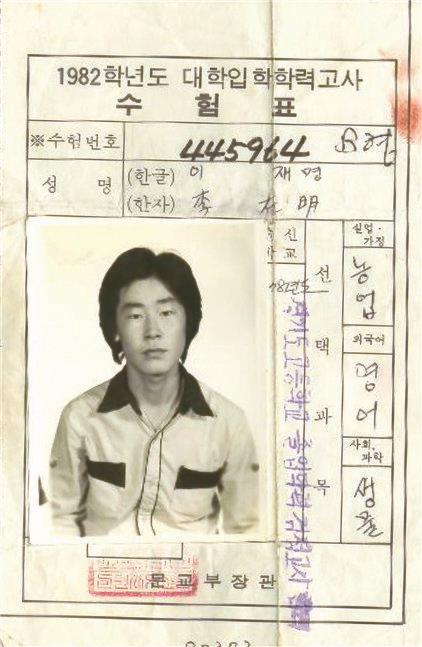 1982학년도 대학입학학력고사
수험표
※수험번호 445964
성명 (한글) 이 재 명
(한자) 李 在 明
선택과목
실업·가정
농업
외국어
영어
사회,과학
생물
문교부장관